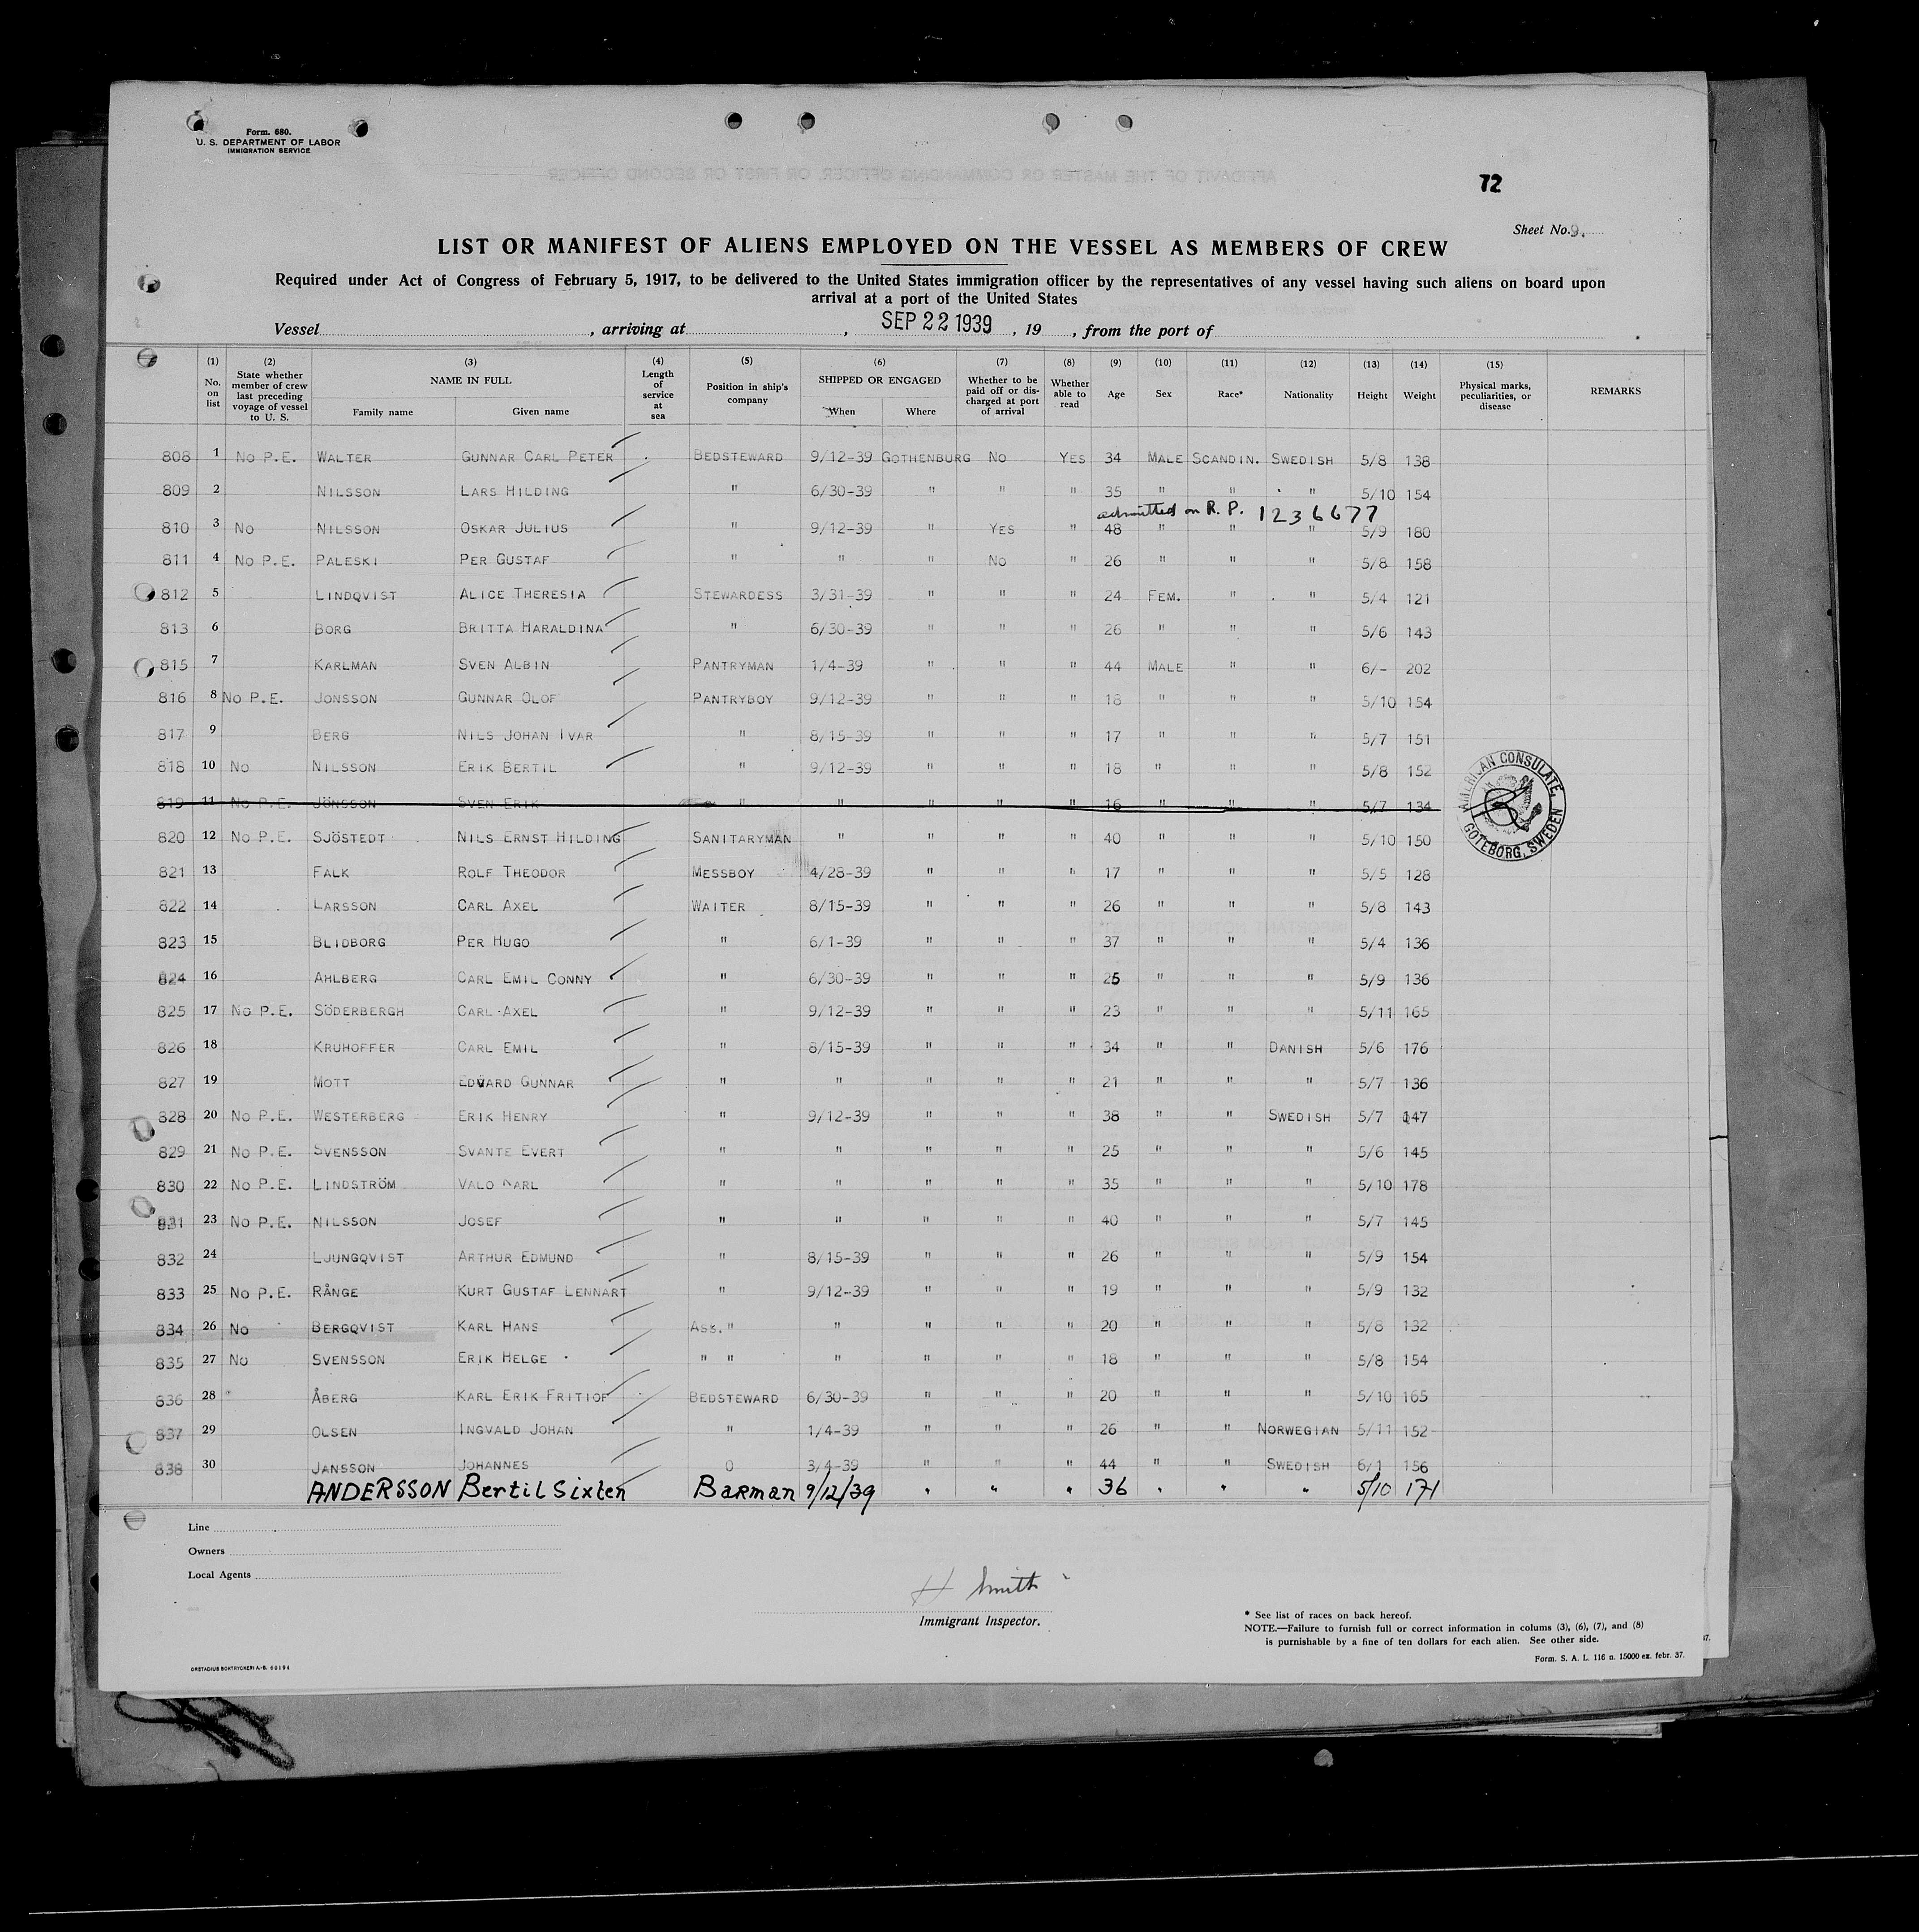 Form. 680.
U. S. DEPARTMENT OF LABOR
IMMIGRATION SERVICE
72
Sheet No. 9.
LIST OR MANIFEST OF ALIENS EMPLOYED ON THE VESSEL AS MEMBERS OF CREW
Required under Act of Congress of February 5, 1917, to be delivered to the United States immigration officer by the representatives of any vessel having such aliens on board upon
arrival at a port of the United States
Vessel , arriving at , SEP 22 1939 , 19 , from the port of
(1) No. on list (2) State whether member of crew last preceding voyage of vessel to U. S. (3) NAME IN FULL Family name Given name (4) Length of service at sea (5) Position in ship's company (6) SHIPPED OR ENGAGED When Where (7) Whether to be paid off or discharged at port of arrival (8) Whether able to read (9) Age (10) Sex (11) Race* (12) Nationality (13) Height (14) Weight (15) Physical marks, peculiarities, or disease REMARKS
808 1 No P.E. WALTER GUNNAR CARL PETER BEDSTEWARD 9/12-39 GOTHENBURG No YES 34 MALE SCANDIN. SWEDISH 5/8 138
809 2 NILSSON LARS HILDING " 6/30-39 " " " 35 " " " 5/10 154
admitted on R. P. 1236677
810 3 No NILSSON OSKAR JULIUS " 9/12-39 " YES " 48 " " " 5/9 180
811 4 No P.E. PALESKI PER GUSTAF " " " No " 26 " " " 5/8 158
812 5 LINDQVIST ALICE THERESIA STEWARDESS 3/31-39 " " " 24 FEM. " " 5/4 121
813 6 BORG BRITTA HARALDINA " 6/30-39 " " " 26 " " " 5/6 143
815 7 KARLMAN SVEN ALBIN PANTRYMAN 1/4-39 " " " 44 MALE " " 6/- 202
816 8 No P.E. JONSSON GUNNAR OLOF PANTRYBOY 9/12-39 " " " 18 " " " 5/10 154
817 9 BERG NILS JOHAN IVAR " 8/15-39 " " " 17 " " " 5/7 151
818 10 No NILSSON ERIK BERTIL " 9/12-39 " " " 18 " " " 5/8 152
819 11 No P.E. JÖNSSON SVEN ERIK " " " " " 16 " " " 5/7 134
AMERICAN CONSULATE GOTEBORG, SWEDEN
820 12 No P.E. SJÖSTEDT NILS ERNST HILDING SANITARYMAN " " " " 40 " " " 5/10 150
821 13 FALK ROLF THEODOR MESSBOY 4/28-39 " " " 17 " " " 5/5 128
822 14 LARSSON CARL AXEL WAITER 8/15-39 " " " 26 " " " 5/8 143
823 15 BLIDBORG PER HUGO " 6/1-39 " " " 37 " " " 5/4 136
824 16 AHLBERG CARL EMIL CONNY " 6/30-39 " " " 25 " " " 5/9 136
825 17 No P.E. SÖDERBERGH CARL-AXEL " 9/12-39 " " " 23 " " " 5/11 165
826 18 KRUHOFFER CARL EMIL " 8/15-39 " " " 34 " " DANISH 5/6 176
827 19 MOTT EDVARD GUNNAR " " " " " 21 " " " 5/7 136
828 20 No P.E. WESTERBERG ERIK HENRY " 9/12-39 " " " 38 " " SWEDISH 5/7 147
829 21 No P.E. SVENSSON SVANTE EVERT " " " " " 25 " " " 5/6 145
830 22 No P.E. LINDSTRÖM VALO KARL " " " " " 35 " " " 5/10 178
831 23 No P.E. NILSSON JOSEF " " " " " 40 " " " 5/7 145
832 24 LJUNGQVIST ARTHUR EDMUND " 8/15-39 " " " 26 " " " 5/9 154
833 25 No P.E. RÅNGE KURT GUSTAF LENNART " 9/12-39 " " " 19 " " " 5/9 132
834 26 No BERGQVIST KARL HANS Ass. " " " " " 20 " " " 5/8 132
835 27 No SVENSSON ERIK HELGE " " " " " " 18 " " " 5/8 154
836 28 ÅBERG KARL ERIK FRITIOF BEDSTEWARD 6/30-39 " " " 20 " " " 5/10 165
837 29 OLSEN INGVALD JOHAN " 1/4-39 " " " 26 " " NORWEGIAN 5/11 152
838 30 JANSSON JOHANNES 0 3/4-39 " " " 44 " " SWEDISH 6/1 156
ANDERSSON Bertil Sixten Barman 9/12/39 " " " 36 " " " 5/10 171
Line
Owners
Local Agents
H Smith
Immigrant Inspector.
* See list of races on back hereof.
NOTE.—Failure to furnish full or correct information in colums (3), (6), (7), and (8)
is punishable by a fine of ten dollars for each alien. See other side.
Form. S. A. L. 116 n. 15000 ex. febr. 37.
ORSTADIUS BOKTRYCKERI A.-B. 60194